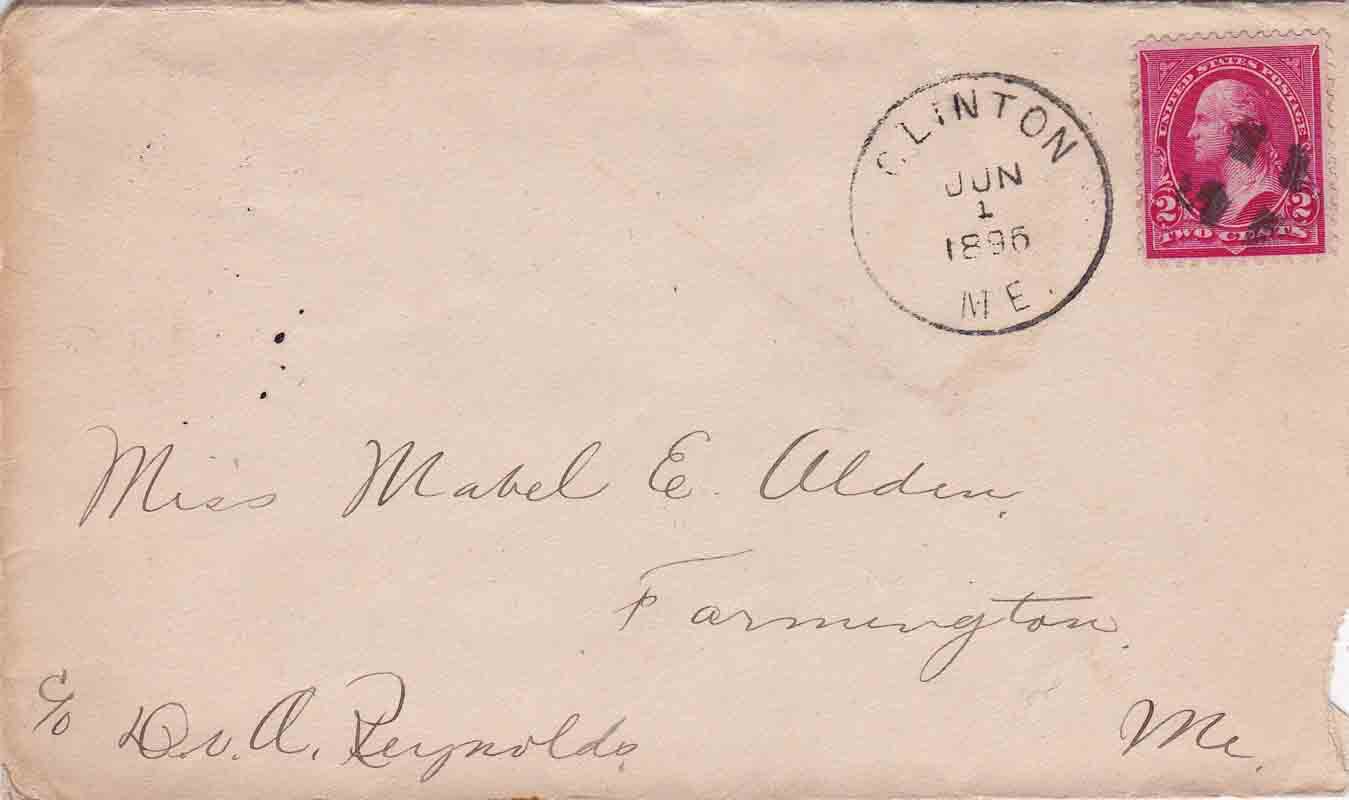 UNITED STATES POSTAGE
2 2
TWO CENTS
CLINTON
JUN
1
1896
ME.
Miss Mabel E. Alden,
Farmington,
Me.
c/o A. Reynolds,